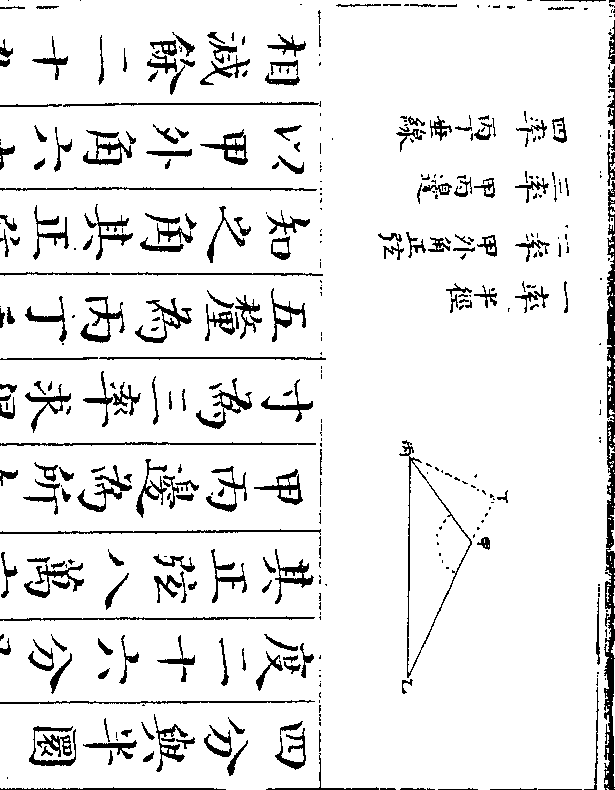 丁
甲
丙
乙
一率 半徑
二率 甲外角正弦
三率 甲丙邊
四率 丙丁垂線
四分與半圜
度二十六分
其正弦八萬
甲丙邊為所
寸為三率求得
五釐為丙丁
知之角其正弦
以甲外角六
相減餘二十九